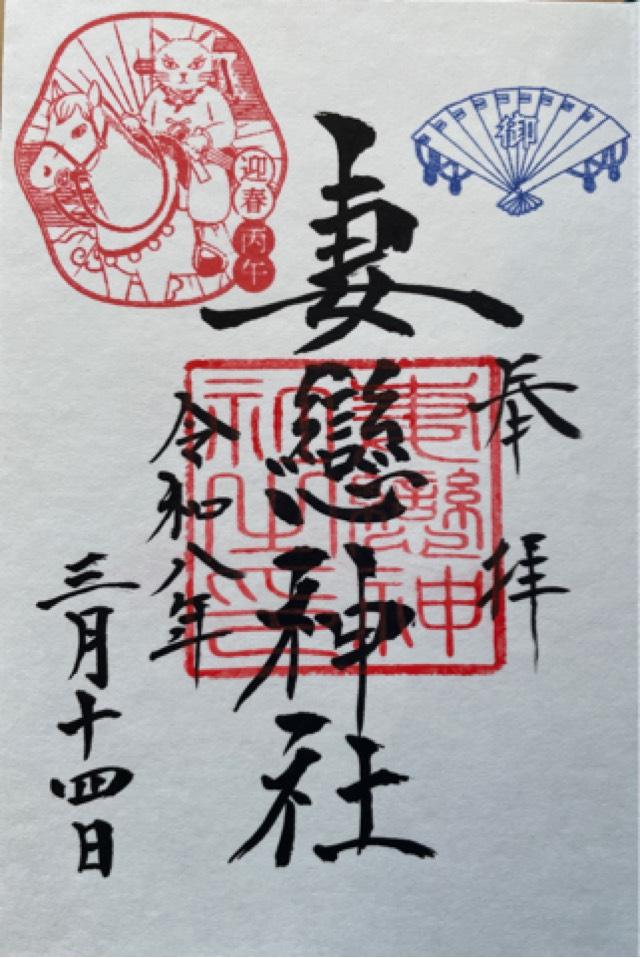 奉拝
妻戀神社
令和八年
三月十四日
迎春
丙午
御
妻戀神
社之印